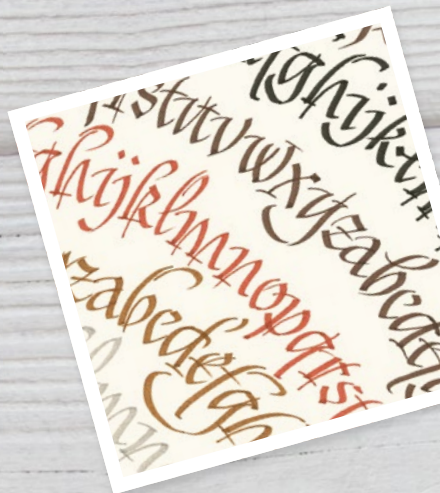 ghijk
rstuvwxyzabcde
ghijklmnopqrst
zabcdefgh
mn